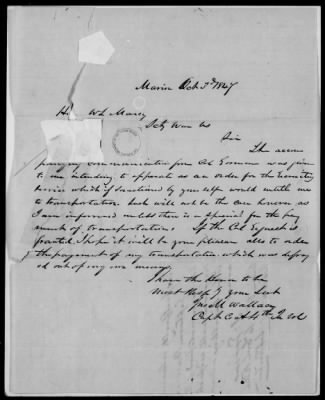 Marin Oct 3d 1847
W L Marcy
Secty War US
Sir
The accom
panying communication from Col Gorman was given
to me intending to opperate as an order for the recruiting
service which if sanctioned by your self would entitle me
to transportation. Such will not be the case however as
I am informed unless there is a special for the pay
ment of transportation. If the Col request is
granted I hope it will be your pleasure also to order
the payment of my transportation which was defray
ed out of my own money.
I have the Honor to be
most Resp your Svt
Wallace
Capt Co A 4th In Vol